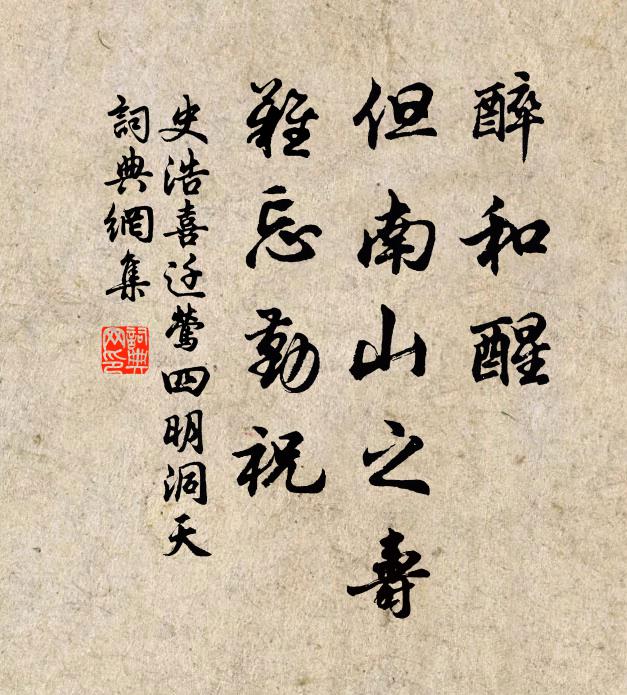 醉和醒
但南山之壽
難忘勤祝
史浩喜迁鶯四明洞天
詞典網集
詞典网印